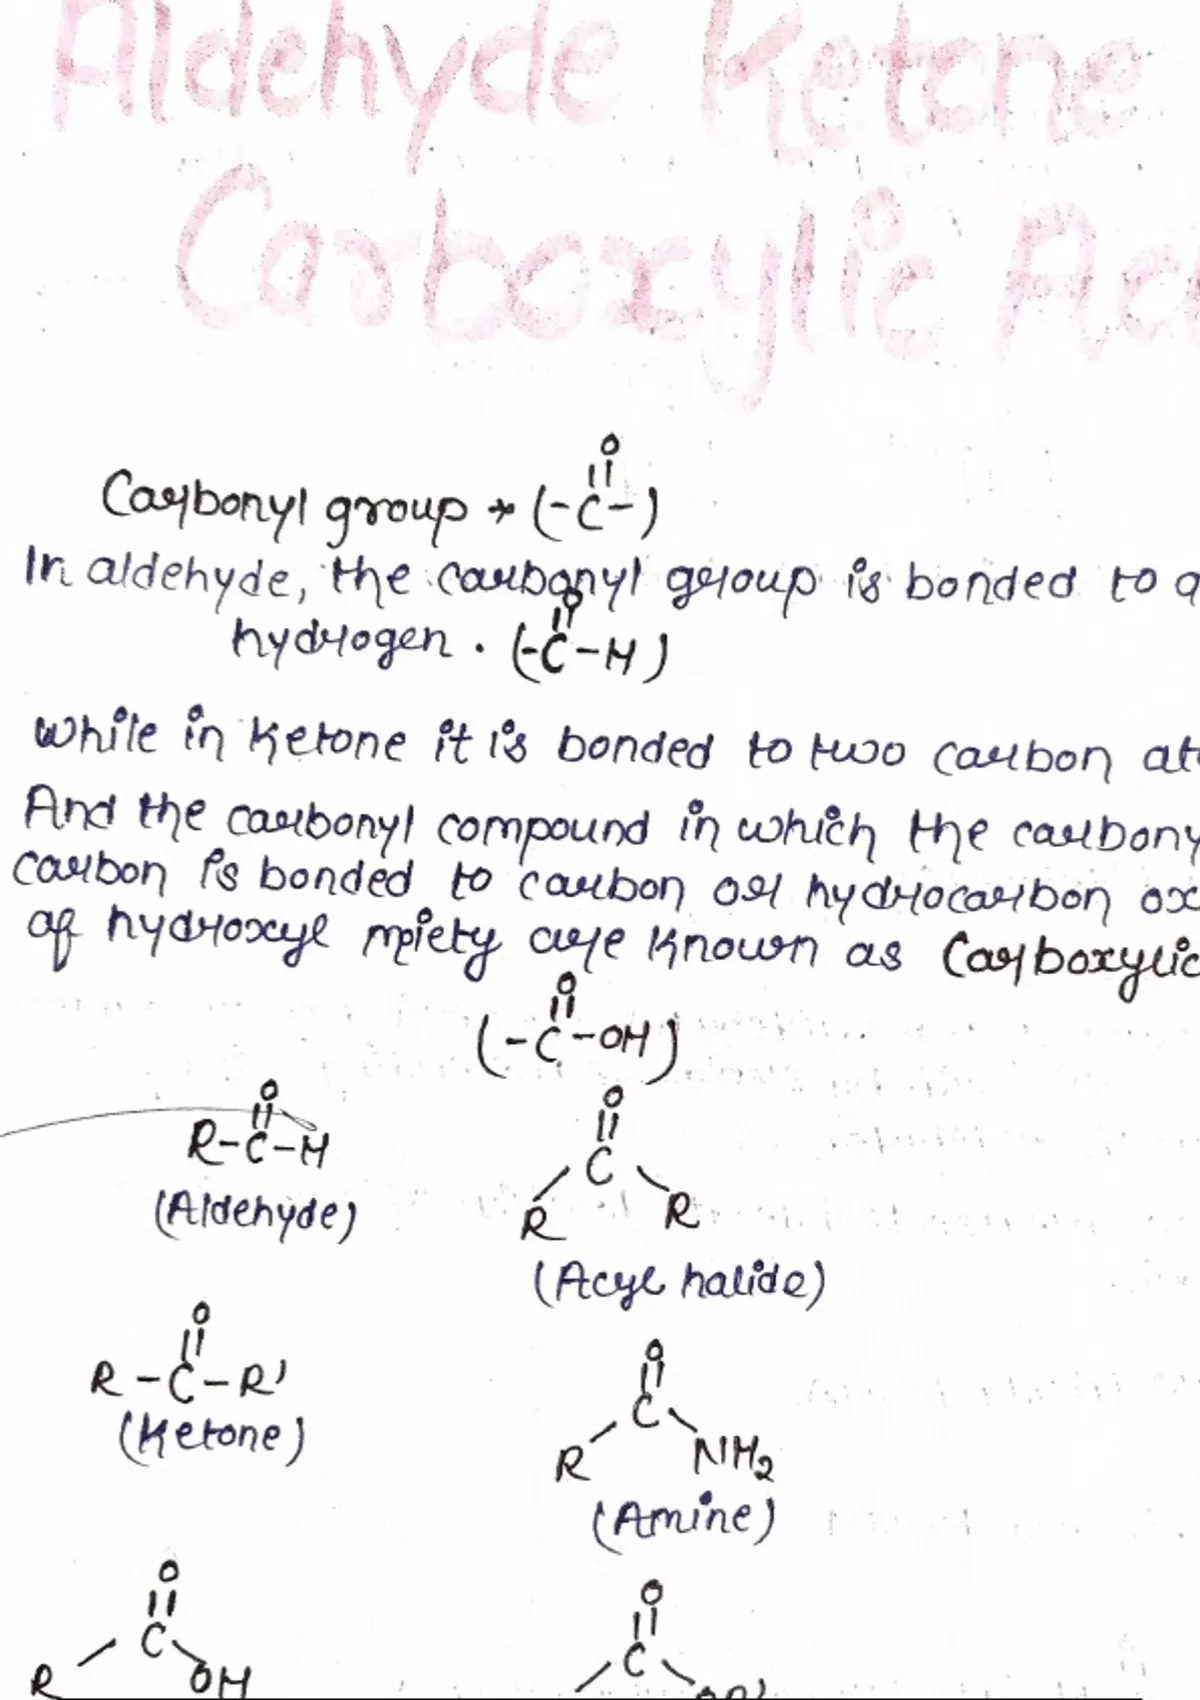 Aldehyde Ketone
Carboxylic
Carbonyl group → (-C-)
O
In aldehyde, the carbonyl group is bonded to a
hydrogen. (-C-H)
O
While in Ketone it is bonded to two carbon
And the carbonyl compound in which the
carbon is bonded to carbon or hydrocarbon
of hydroxyl moiety are known as Carboxylic
O
(-C-OH)
O
R-C-H
(Aldehyde)
O
C
R R
(Acyl halide)
O
R-C-R'
(Ketone)
O
C
R NH₂
(Amine)
O
C
R OH
O
C